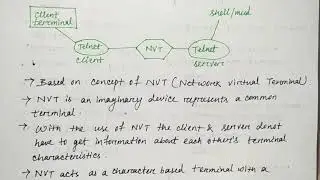 client
terminal
shell/cmd
Telnet
NVT
Telnet
client
server
→ Based on concept of NVT (Network virtual Terminal)
→ NVT is an imaginary device represents a common
terminal.
→ With the use of NVT the client & servers donot
have to get information about each other's terminal
characteristics.
→ NVT acts as a character based terminal with a